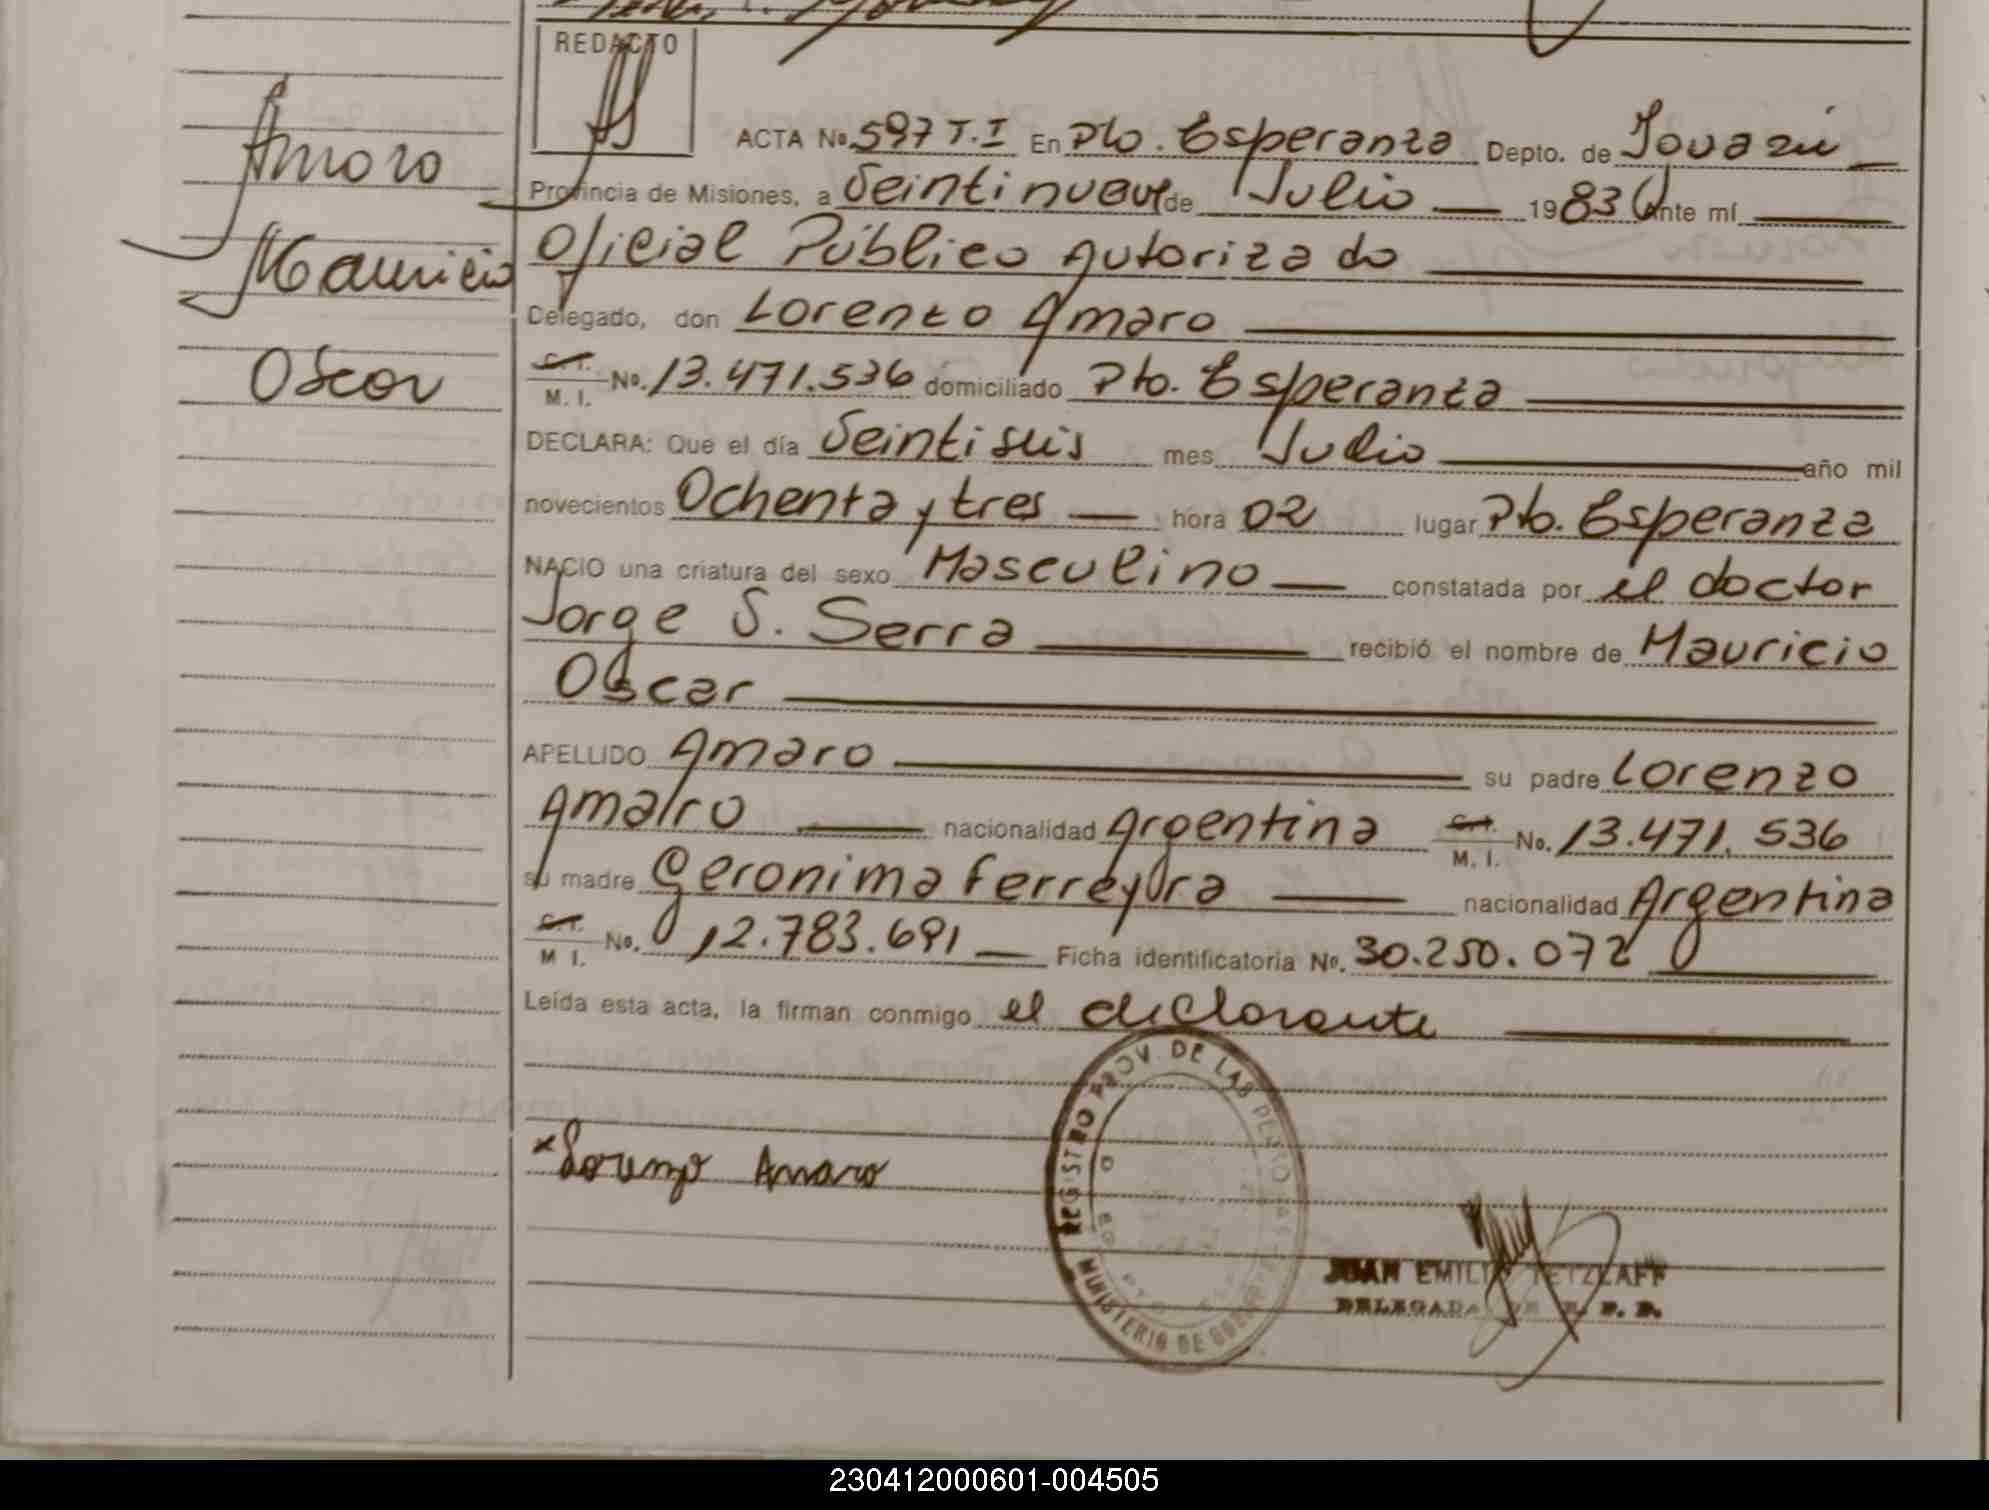 REDACTO
ACTA No. 597 T.I En Pto. Esperanza Depto. de Iguazú
Provincia de Misiones, a Veintinueve de Julio 1983 Ante mí
Oficial Público Autorizado
Delegado, don Lorenzo Amaro
C.I. M. I. No. 13.471.536 domiciliado Pto. Esperanza
DECLARA: Que el día Veintiseis mes Julio año mil
novecientos Ochenta y tres hora 02 lugar Pto. Esperanza
NACIO una criatura del sexo Masculino constatada por el doctor
Jorge S. Serra recibió el nombre de Mauricio
Oscar
APELLIDO Amaro su padre Lorenzo
Amaro nacionalidad Argentina C.I. M. I. No. 13.471.536
su madre Geronima Ferreyra nacionalidad Argentina
C.I. M I. No. 12.783.691 Ficha identificatoria No. 30.250.072
Leída esta acta, la firman conmigo el declarante
Amaro
Mauricio
Oscar
Lorenzo Amaro
REGISTRO PROV. DE LAS PERSONAS
MINISTERIO DE
JUAN EMILIO TETZLAFF
230412000601-004505